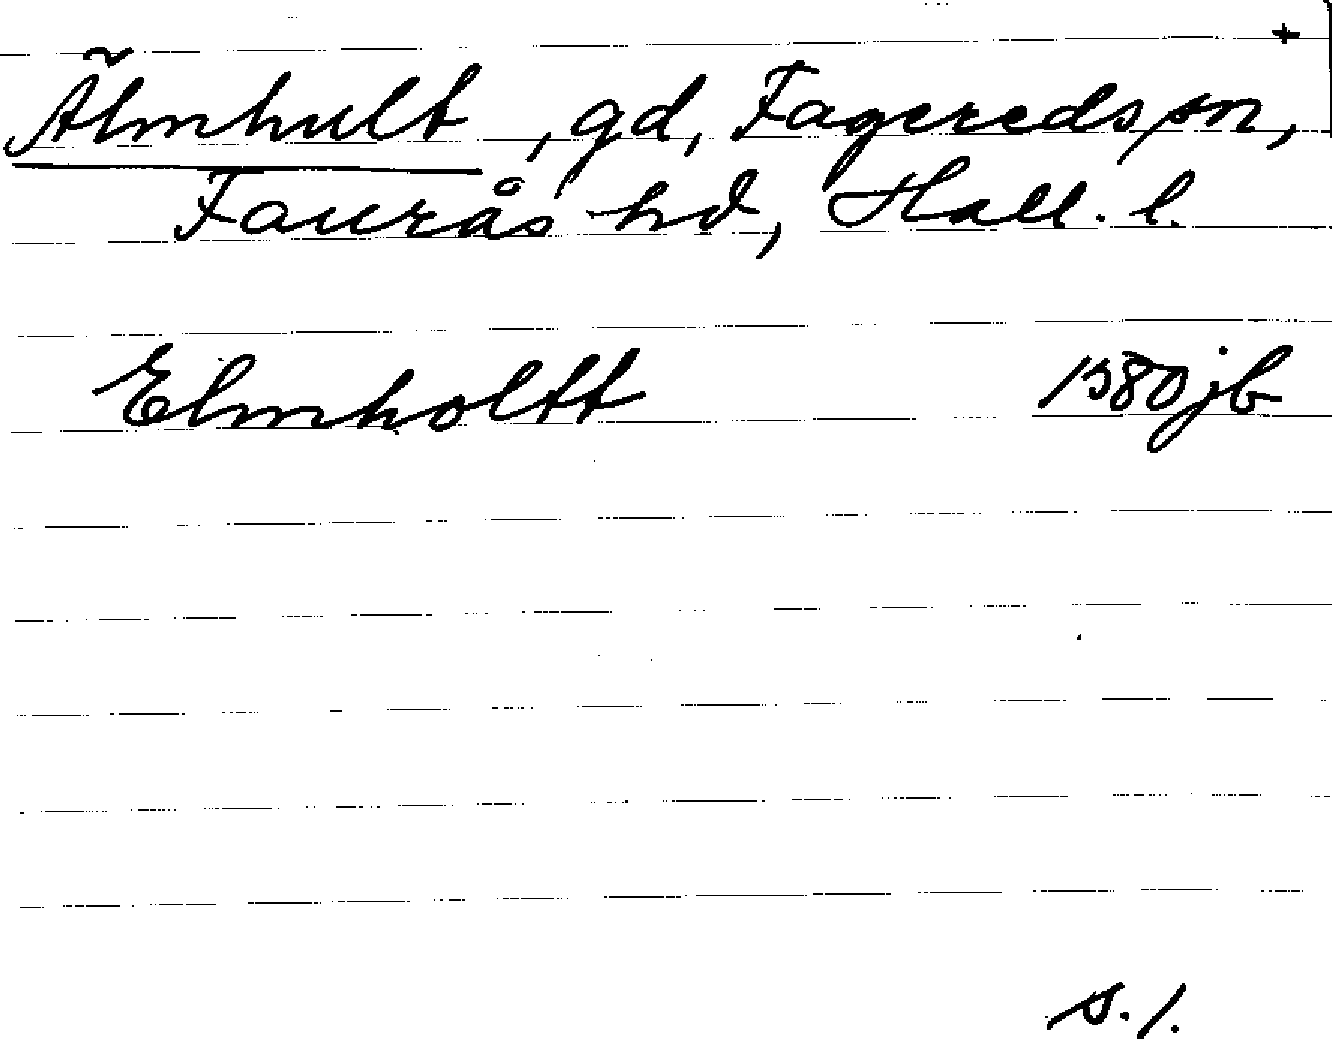 +
Älmhult, gd, Fagereds sn,
Faurås hd, Hall. l.
Elmholtt 1580 jb
s. 1.